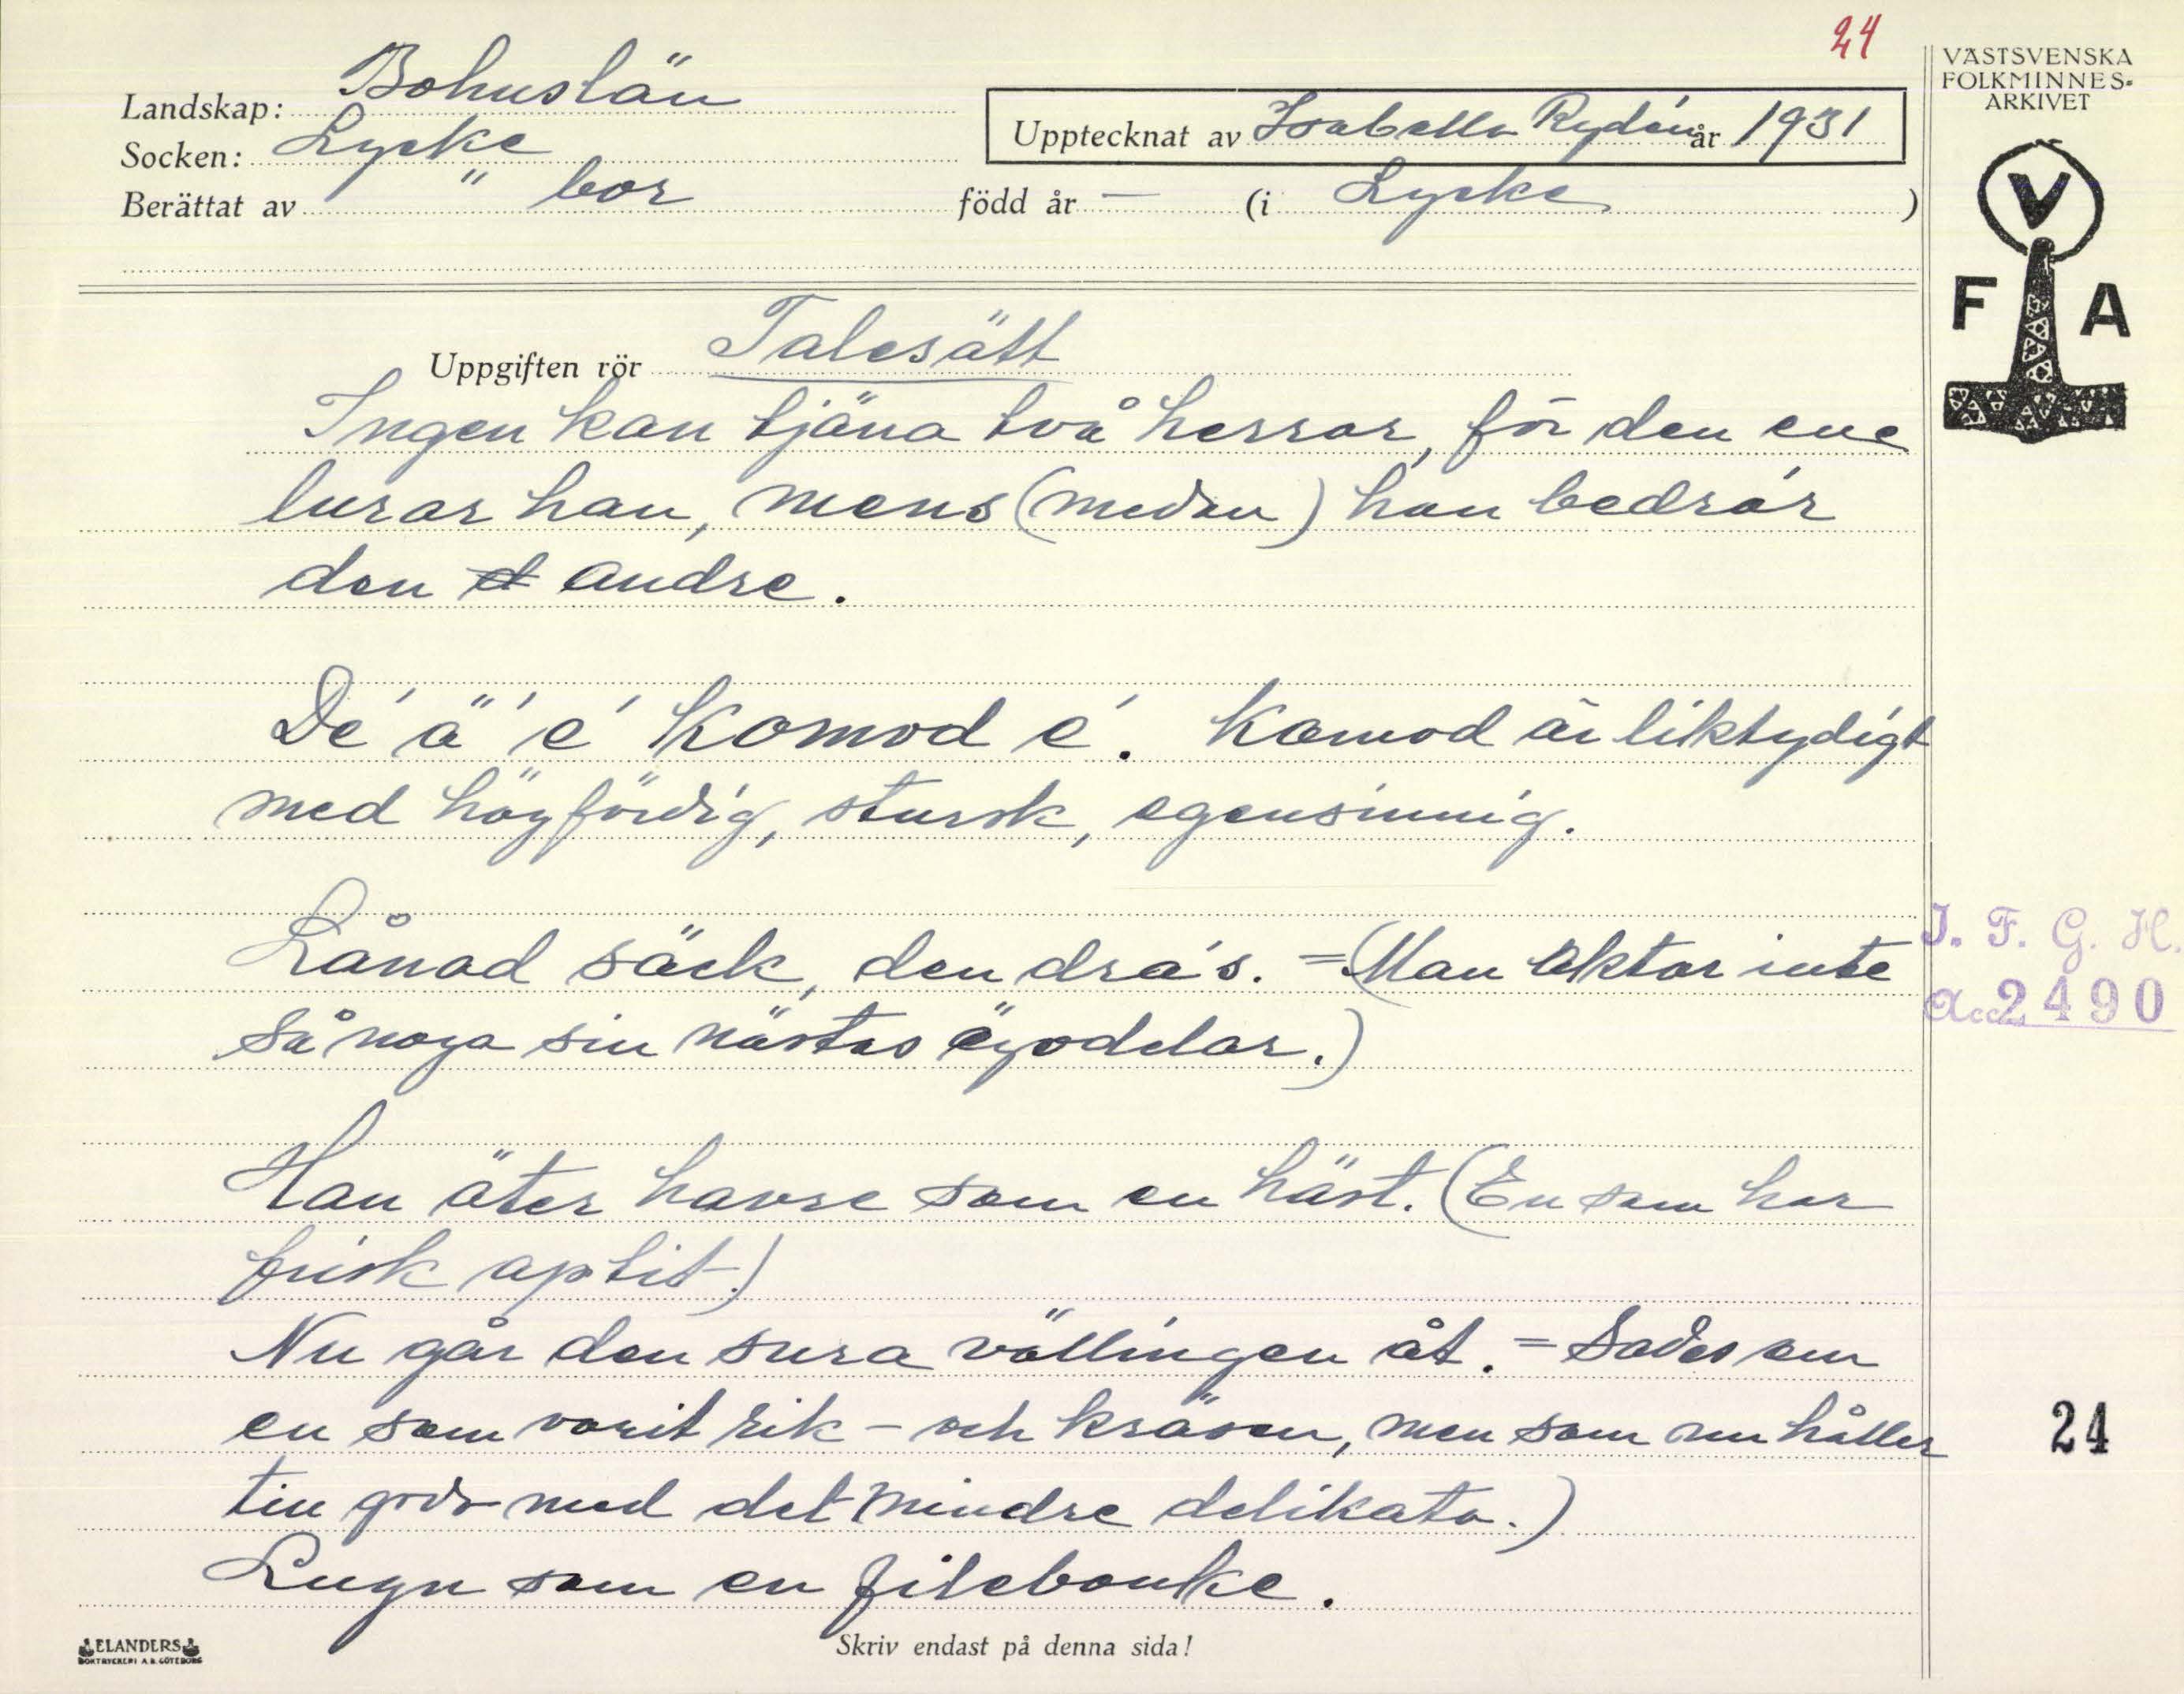 24
VÄSTSVENSKA
FOLKMINNES-
ARKIVET
Landskap: Bohuslän
Upptecknat av Isabella Rydén år 1931
Socken: Lycke
Berättat av " bor född år — (i Lycke )
V
F A
Uppgiften rör Talesätt
Ingen kan tjäna två herrar, för den ene
lurar han, mens (medan) han bedrar
den andre.
De' ä' e' komod e'. Komod är liktydigt
med högfärdig, stursk, egensinnig.
Lånad säck, den dra's. = (Man aktar inte
så noga sin nästas ägodelar.)
J. F. G. H.
Acc. 2490
Han äter havre som en häst. (En som har
frisk aptit.)
Nu går den sura vällingen åt. = Sades om
en som varit rik - och kräsen, men som nu håller
till godo med det mindre delikata.)
24
Lugn som en filebonke.
ELANDERS
BOKTRYCKERI A.B. GÖTEBORG
Skriv endast på denna sida!